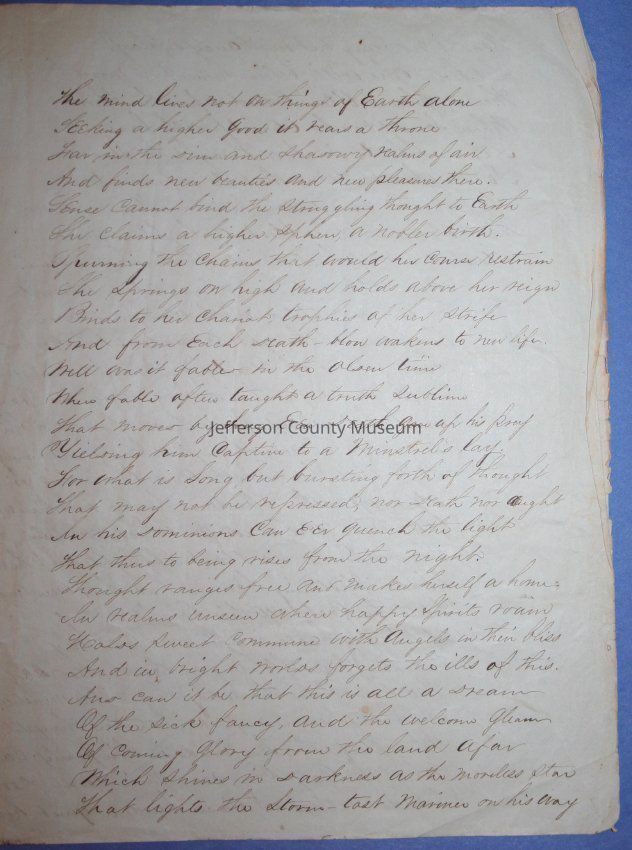 The mind lives not on things of Earth alone
Seeking a higher good it rears a throne
Far in the dim and shadowy realms of air
And finds new beauties and new pleasures there.
Sense cannot bind the struggling thought to Earth
She claims a higher sphere, a nobler birth.
Spurning the chains that would her course restrain
She springs on high and holds above her reign
Binds to her chariot, trophies of her strife
And from Each death-blow wakens to new life.
Well was it fabled in the olden time
When fable often taught a truth sublime
That moved by song Even death gave up his prey
Jefferson County Museum
Yielding him Captive to a Minstrel's lay
For what is Song but bursting forth of thought
That may not be repressed, nor death nor aught
In his dominions Can E'er quench the light
That thus to being rises from the night.
Thought ranges free and makes herself a home:
In realms unseen where happy Spirits roam
Holds sweet commune with Angels in their bliss
And in bright worlds forgets the ills of this.
And can it be that this is all a dream
Of the sick fancy, and the welcome gleam
Of coming Glory from the land afar
Which shines in darkness as the star
That lights the Storm-tost Mariner on his way